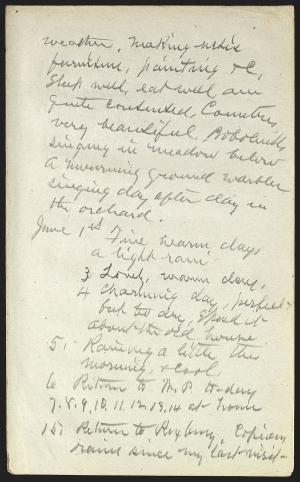 weather, making rustic
furniture, painting &c,
Sleep well, eat well, am
quite contented, Country
very beautiful. Bobolinks
singing in meadow below
a mourning ground warbler
singing day after day in
the orchard.
June 1st Fine warm days
a light rain
3 Lovely, warm day,
4 Charming day, perfect
but too dry, Spend it
about the old house
5. Raining a little this
morning, & cool.
6 Return to W. P. to-day
7. 8. 9. 10. 11. 12. 13. 14 at home
15. Return to Roxbury, Copious
rains since my last visit-